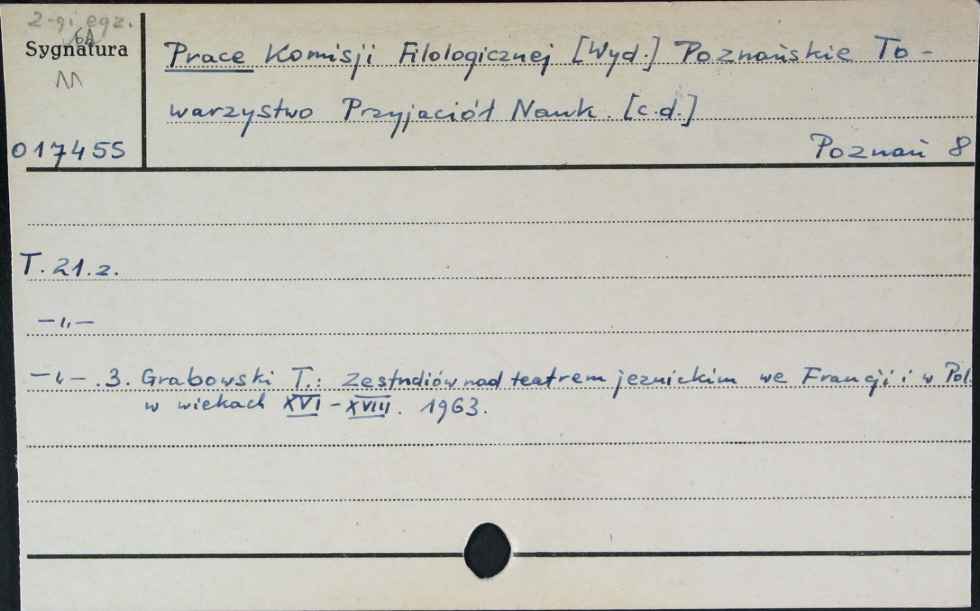 2-gi egz.
6A
Sygnatura
017455
Prace Komisji Filologicznej [Wyd.] Poznańskie To-
warzystwo Przyjaciół Nauk. [c.d.]
Poznań 8
T. 21. z.
—„—
—„— . 3. Grabowski T.: Ze studiów nad teatrem jezuickim we Francji i w Pol.
w wiekach XVI - XVIII. 1963.